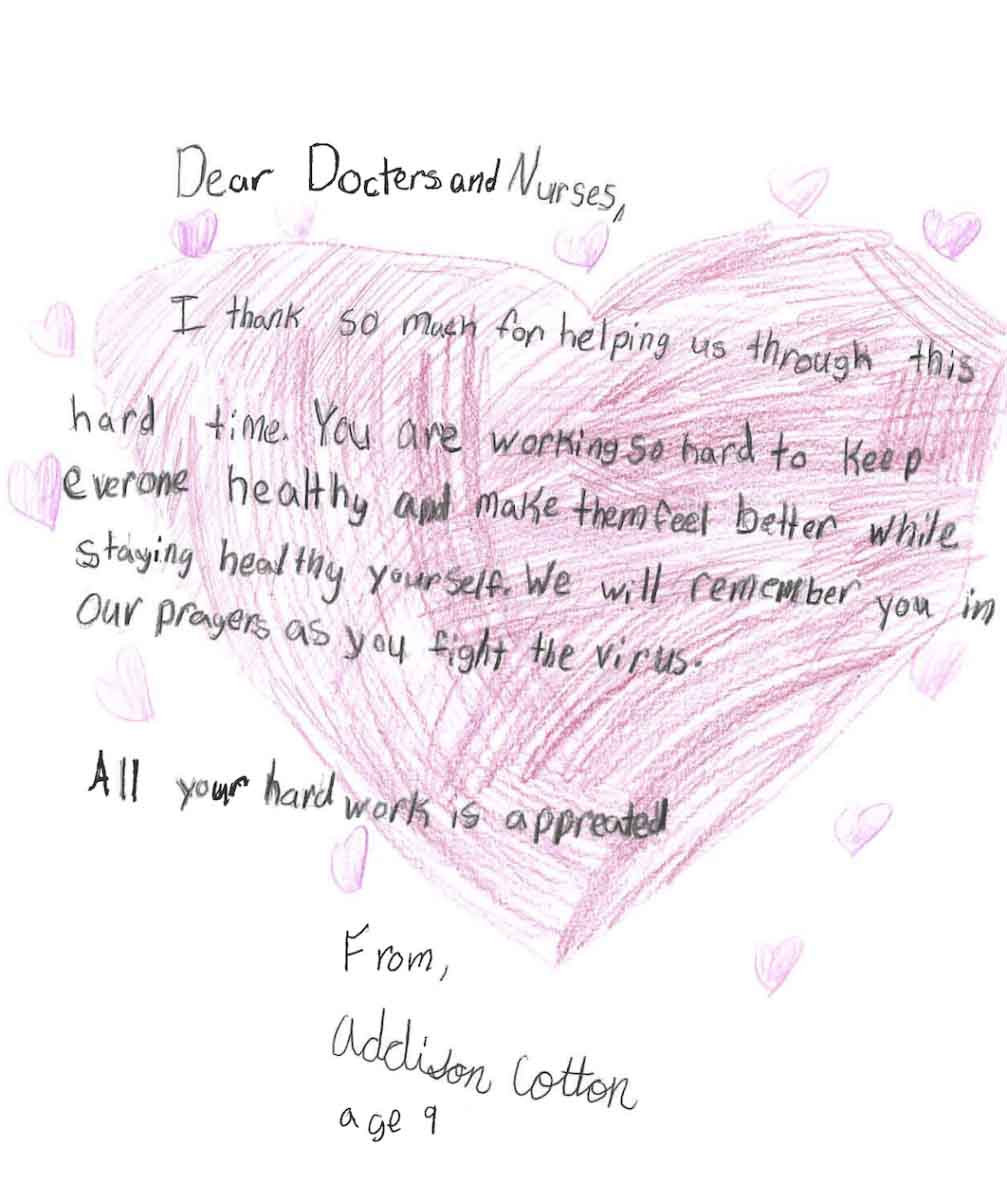 Dear Docters and Nurses,
I thank so much for helping us through this
hard time. You are working so hard to keep
everone healthy and make them feel better while
staying healthy yourself. We will remember you in
Our prayers as you fight the virus.
All your hard work is appreated
From,
Addison Cotton
age 9